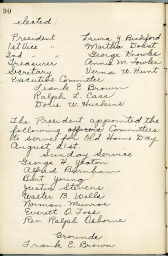 90
elected.
President Laura G. Bickford
1st Vice " Martha Dobst
2nd " George Knowles
Treasurer Annie M. Fowler
Secretary Verna W. Hunt
Executive Committee
Frank E. Brown
Ralph L. Cary
Dorie W. Huskins
The President appointed the
following Committees
to serve for Old Home Day
August 21st.
Sunday Service
George H. Yeaton
Alfred Birnbaum
Burt Young
Justin Stevens
Walter B. Wells
Norman Munroe
Everett O. Foss
Rev Ralph Osborne
Grounds
Frank E. Brown